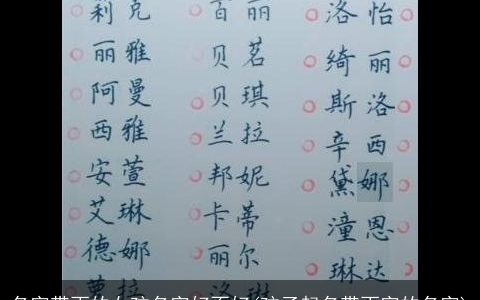 莉克 百丽 洛怡
丽雅 贝茗 绮丽
阿曼 贝琪 斯洛
西雅 兰拉 辛西
安萱 邦妮 黛娜
艾琳 卡蒂 潼恩
德娜 丽尔 琳达
名字带 的女孩名字好不好(孩子起名带 字的名字)